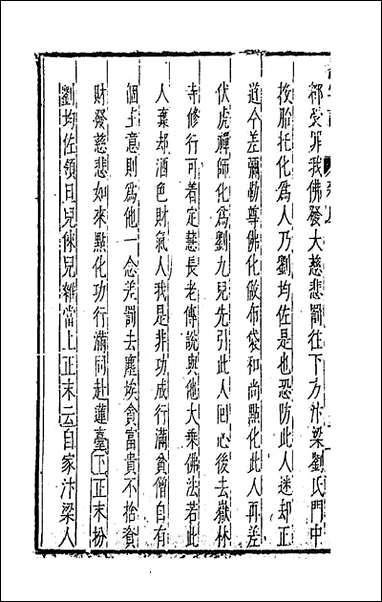 都受罪我佛發大慈悲罰往下方汴梁劉氏門中
投胎托化為人乃劉均佐是也恐防此人迷却正
道今差彌勒尊佛化做布袋和尚點化此人再差
伏虎禪師化為劉九兒先引此人回心後去嶽林
寺修行可着定慧長老傳說與他大乘佛法若此
人棄却酒色財氣人我是非功成行滿貧僧自有
個主意則為他一念差罰去塵埃貪富貴不捨貲
財發慈悲如來點化功行滿同赴蓮臺下正末扮
劉均佐領旦兒俫兒雜當上正末云自家汴梁人